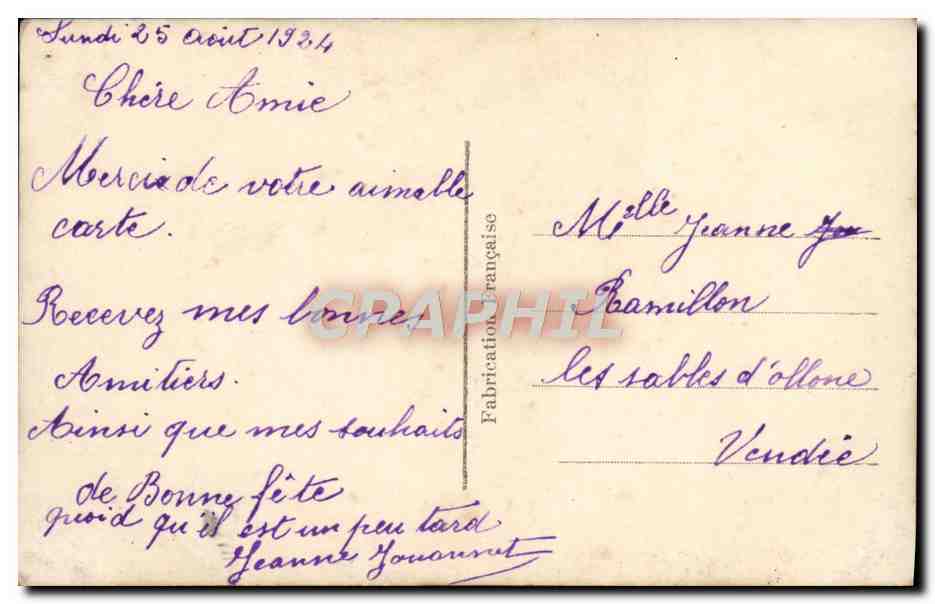 Lundi 25 Août 1924
Chère Amie
Merci de votre aimable
carte.
Recevez mes bonnes
Amitiers.
Ainsi que mes souhaits
de Bonne fête
quoid qu'il est un peu tard
Jeanne Jouannet
Fabrication Française
Melle Jeanne
Ramillon
les sables d'ollone
Vendée
CPAPHIL